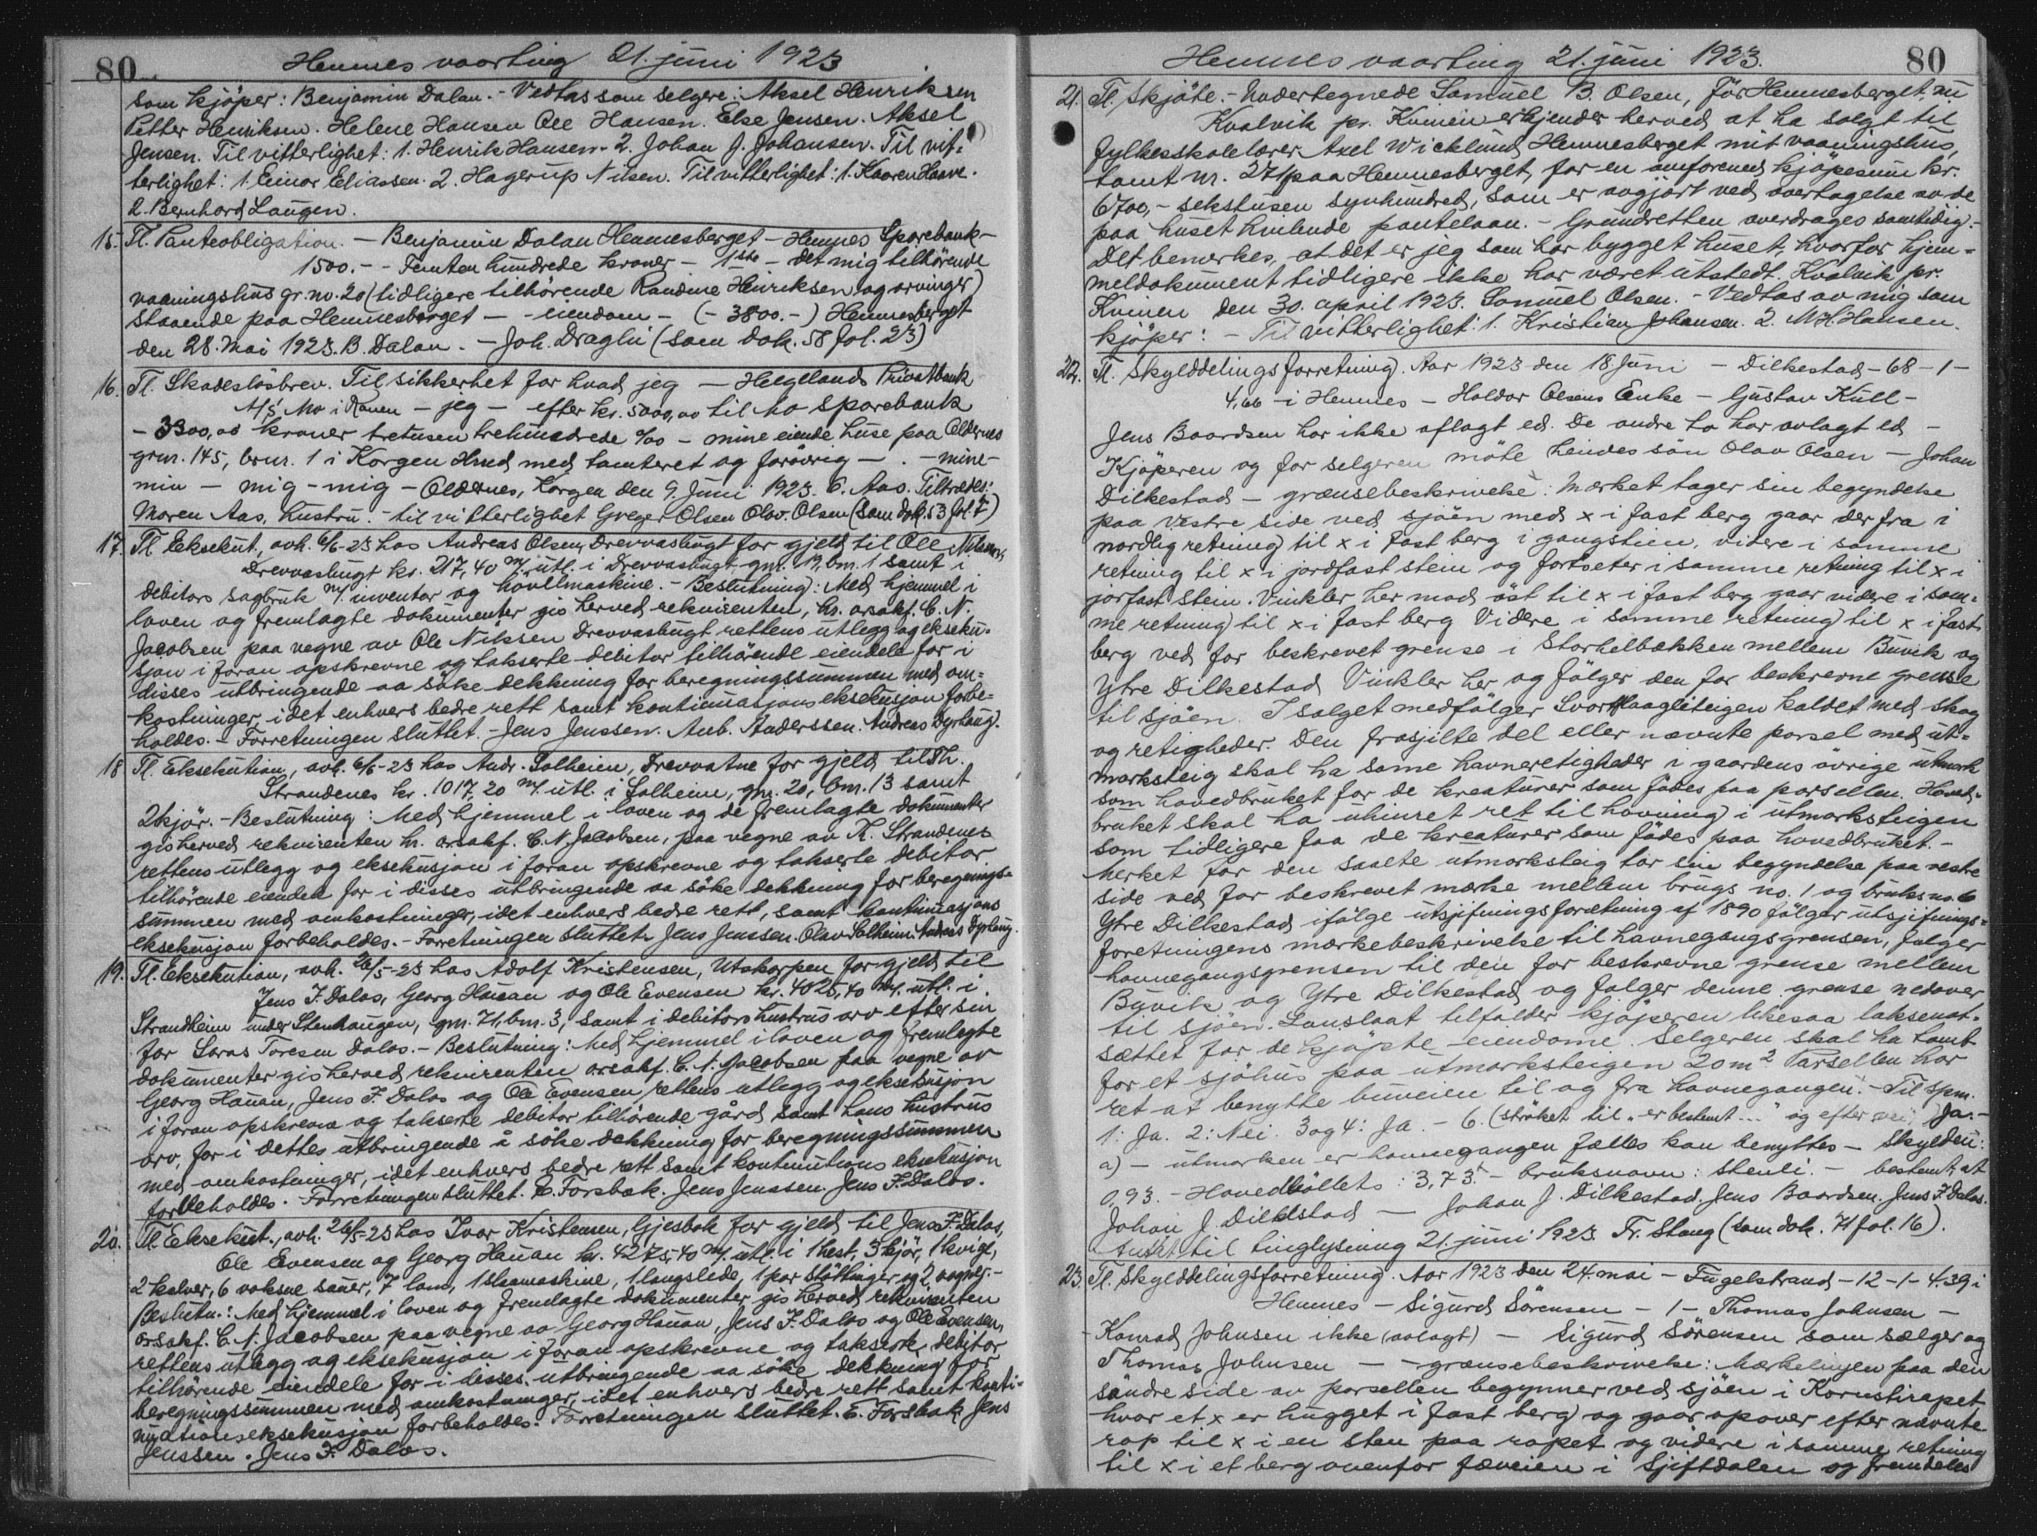 80 Hemnes vaarting 21. juni 1923
som kjøper: Benjamin Dalan. - Vedtas som selgere: Aksel Henriksen
Petter Henriksen. Helene Hansen Ole Hansen. Else Jensen. Aksel
Jensen. Til vitterlighet: 1. Henrik Hansen. 2. Johan J. Johansen. Til vit-
terlighet: 1. Einar Eliassen. 2. Hagerup Nilsen. Til vitterlighet: 1. Kaaren Haave.
2. Bernhard Laugen.
15. Tl. Panteobligation. - Benjamin Dalan Hemnesberget - Hemnes Sparebank -
1500.- - Femten hundrede kroner - 1ste - det mig tilhørende
vaaningshus gr. no. 20 (tidligere tilhørende Randine Henriksen og arvinger)
staaende paa Hemnesberget - - eiendom - (- 3800.-) Hemnesberget
den 28. Mai 1923. B. Dalan. - Joh. Draglu (som dok. 58 fol. 23)
16. Tl. Skadesløsbrev. Til sikkerhet for hvad jeg - Helgelands Privatbank
A/S Mo i Ranen - jeg - efter kr. 5000,00 til Mo Sparebank
- 3300,00 kroner tretusen trehundrede 0/00 - mine eiende huse paa Oldernes
grnr. 145, brnr. 1 i Korgen Hrred med tomteret og forøvrig - . - mine -
min - mig - mig - Oldernes, Korgen den 9. Juni 1923. E. Aas. Tiltrædes:
Maren Aas, hustru. - til vitterlighet Greger Olsen Olav Olsen (som dok. 53 fol. 7)
17. Tl. Eksekut., avh. 6/6-23 hos Andreas Olsen, Drevvasbugt for gjeld til Ole Nilsen,
Drevvasbugt kr. 217,40 m/ utl. i Drevvasbugt gnr. 19, bnr. 1 samt i
debitors sagbruk m/ inventar og høvelmaskine. - Beslutning: Med hjemmel i
loven og fremlagte dokumenter gis herved rekvirenten, hr. orsakf. C. N.
Jacobsen paa vegne av Ole Nilsen Drevvasbugt rettens utlegg og ekseku-
sjon i foran opskrevne og takserte debitor tilhørende eiendele for i
disses utbringende aa søke dekkning for beregningssummen med om-
kostninger, idet enhvers bedre rett samt kontinuasjons eksekusjon forbe-
holdes. - Forretningen sluttet. - Jens Jenssen. Anb. Anderssen. Andreas Dyrhaug.
18 Tl. Eksekution, avh. 6/6-23 hos Andr. Solheim, Drevvatne for gjeld til Th.
Strandenes kr. 1017,20 m/ utl. i Solheim, gnr. 20, bnr. 13 samt
2 kjør. - Beslutning: Med hjemmel i loven og de fremlagte dokumenter
gis herved rekvirenten hr. orsakf. C. N. Jacobsen, paa vegne av K. Strandenes
rettens utlegg og eksekusjon i foran opskrevne og takserte debitor
tilhørende eiendele for i disses utbringende aa søke dekkning for beregnings-
summen med omkostninger, idet enhvers bedre rett, samt kontinuasjons
eksekusjon forbeholdes. - Forretningen sluttet. Jens Jenssen. Olav Solheim. Andreas Dyrhaug.
19. Tl. Eksekution, avh. 26/5-23 hos Adolf Kristensen, Utskarpen for gjeld til
Jens F. Dalos, Georg Hauan og Ole Evensen kr. 4025,40 m/ utl. i
Strandheim under Stenhaugen, gnr. 71, bnr. 3, samt i debitors hustrus arv efter sin
far Soras Toresen Dalos. - Beslutning: Med hjemmel i loven og fremlagte
dokumenter gis herved rekvirenten orsakf. C. N. Jacobsen paa vegne av
Georg Hauan, Jens F. Dalos og Ole Evensen rettens utlegg og eksekusjon
i foran opskrevne og takserte debitor tilhørende gård samt hans hustrus
arv, for i dettes utbringende å søke dekkning for beregningssummen
med omkostninger, idet enhvers bedre rett samt kontinutions eksekusjon
forbeholdes. Forretningen sluttet. E. Forsbak. Jens Jenssen. Jens F. Dalos.
20. Tl. Eksekut., avh. 26/5-23 hos Ivar Kristensen, Gjesbak for gjeld til Jens F. Dalos,
Ole Evensen og Georg Hauan kr. 4275,40 m/ utl. i 1 hest, 3 kjør, 1 kvige,
2 kalver, 6 voksne sauer, 7 lam, 1 slaamaskine, 1 langslede, 1 par støttinger og 2 vogner. -
Beslutn.: Med hjemmel i loven og fremlagte dokumenter gis herved rekvirenten
orsakf. C. N. Jacobsen paa vegne av Georg Hauan, Jens F. Dalos og Ole Evensen,
rettens utlegg og eksekusjon i foran opskrevne og takserte, debitor
tilhørende eiendele for i disses utbringende aa søke dekkning for
beregningssummen med omkostninger, idet enhvers bedre rett samt konti-
nuationseksekusjon forbeholdes. Forretningen sluttet. E. Forsbak Jens
Jenssen. Jens F. Dalos.
Hemnes vaarting 21. juni 1923. 80
21. Tl. Skjøte. - Undertegnede Samuel B. Olsen, før Hemnesberget, nu
Kvalvik pr. Kvinen erkjender herved at ha solgt til
fylkesskolelærer Axel Wicklund Hemnesberget mit vaaningshus,
tomt nr. 271 paa Hemnesberget, for en omforenet kjøpesum kr.
6700,- sekstusen syvhundred, som er avgjort ved overtagelse av de
paa huset hvilende pantelaan. - Grundretten overdrages samtidig. -
Det bemerkes, at det er jeg som har bygget huset, hvorfor hjem-
meldokument tidligere ikke har været utstedt. Kvalvik pr.
Kvinen den 30. april 1923. Samuel Olsen. - Vedtas av mig som
kjøper: - Til vitterlighet: 1. Kristian Johansen. 2. M. H. Hansen.
22. Tl. Skylddelingsforretning. Aar 1923 den 18. Juni - Dilkestad - 68 - 1 -
4,66 - i Hemnes - Haldor Olsens Enke - Gustav Kull -
Jens Baardsen har ikke aflagt ed. De andre to har avlagt ed -
Kjøperen og for selgeren møte hendes søn Olav Olsen - Johan
Dilkestad - grænsebeskrivelse: Mærket tager sin begyndelse
paa vestre side ved sjøen med x i fast berg gaar der fra i
nordlig retning til x i fast berg i gangstien, videre i samme
retning til x i jordfast stein og fortseter i samme retning til x i
jorfast stein. Vinkler her mod øst til x i fast berg gaar videre i sam-
me retning til x i fast berg Videre i samme retning til x i fast
berg ved før beskrevet grense i Storhelbækken mellem Buvik og
Ytre Dilkestad Vinkler her og følger den før beskrevne grense
til sjøen. I salget medfølger Svortflaagleteigen kaldet med skog
og retigheder. Den frasjilte del eller nævnte porsel med ut-
marksteig skal ha same havneretigheder i gaardens øvrige utmark
som hovedbruket for de kreaturer som fødes paa porsellen. Hoved-
bruket skal ha uhinret ret til havning i utmarksteigen
som tidligere faa de kreaturer som fødes paa hovedbruket. -
Merket for den saalte utmarksteig tar sin begyndelse paa vestre
side ved før beskrevet mærke mellem brugs no. 1 og bruks no. 6
Ytre Dilkestad ifølge utsjifningsforetning af 1890 følger utsjifnings-
foretningens mærkebeskrivelse til havnegangsgrensen, følger
havnegangsgrensen til den før beskrevne grense mellem
Buvik og Ytre Dilkestad og følger denne grense nedover
til sjøen. Lanslaat tilfalder kjøperen likesaa laksenot-
sættet for de kjøpte eiendome. Selgeren skal ha tomt
for et sjøhus paa utmarksteigen 20 m2 Parsellen har
ret at benytte buveien til og fra havnegangen. - Til spm.
1: Ja. 2: Nei. 3 og 4: Ja. - 6. (strøket til „er bestemt..." og efter Ja. -
a) - utmarken er havnegangen fælles kan benyttes - Skylden:
0,93. - Hovedbøllets: 3,73. - bruksnavn: Stenli. - bestemt, at
Johan J. Dilkestad - Johan J. Dilkestad. Jens Baardsen. Jens F. Dalos.
Antat til tinglysning 21. juni 1923. Fr. Stang (som dok. 71 fol. 16).
23. Tl. Skylddelingsforretning. Aar 1923 den 24. mai - Fugelstrand - 12 - 1 - 4.39 i
Hemnes - Sigurd Sørensen - 1 - Thomas Johnsen -
Konrad Johnsen ikke (avlagt) - Sigurd Sørensen som sælger og
Thomas Johnsen - - grænsebeskrivelse: Mærkelinjen paa den
søndre side av parsellen begynner ved sjøen i Kornstirapet
hvor et x er hugget i fast berg og gaar opover efter nævnte
rap til x i en sten paa rapet og videre i samme retning
til x i et berg ovenfor fæveien i Sjiftdalen og fremdeles